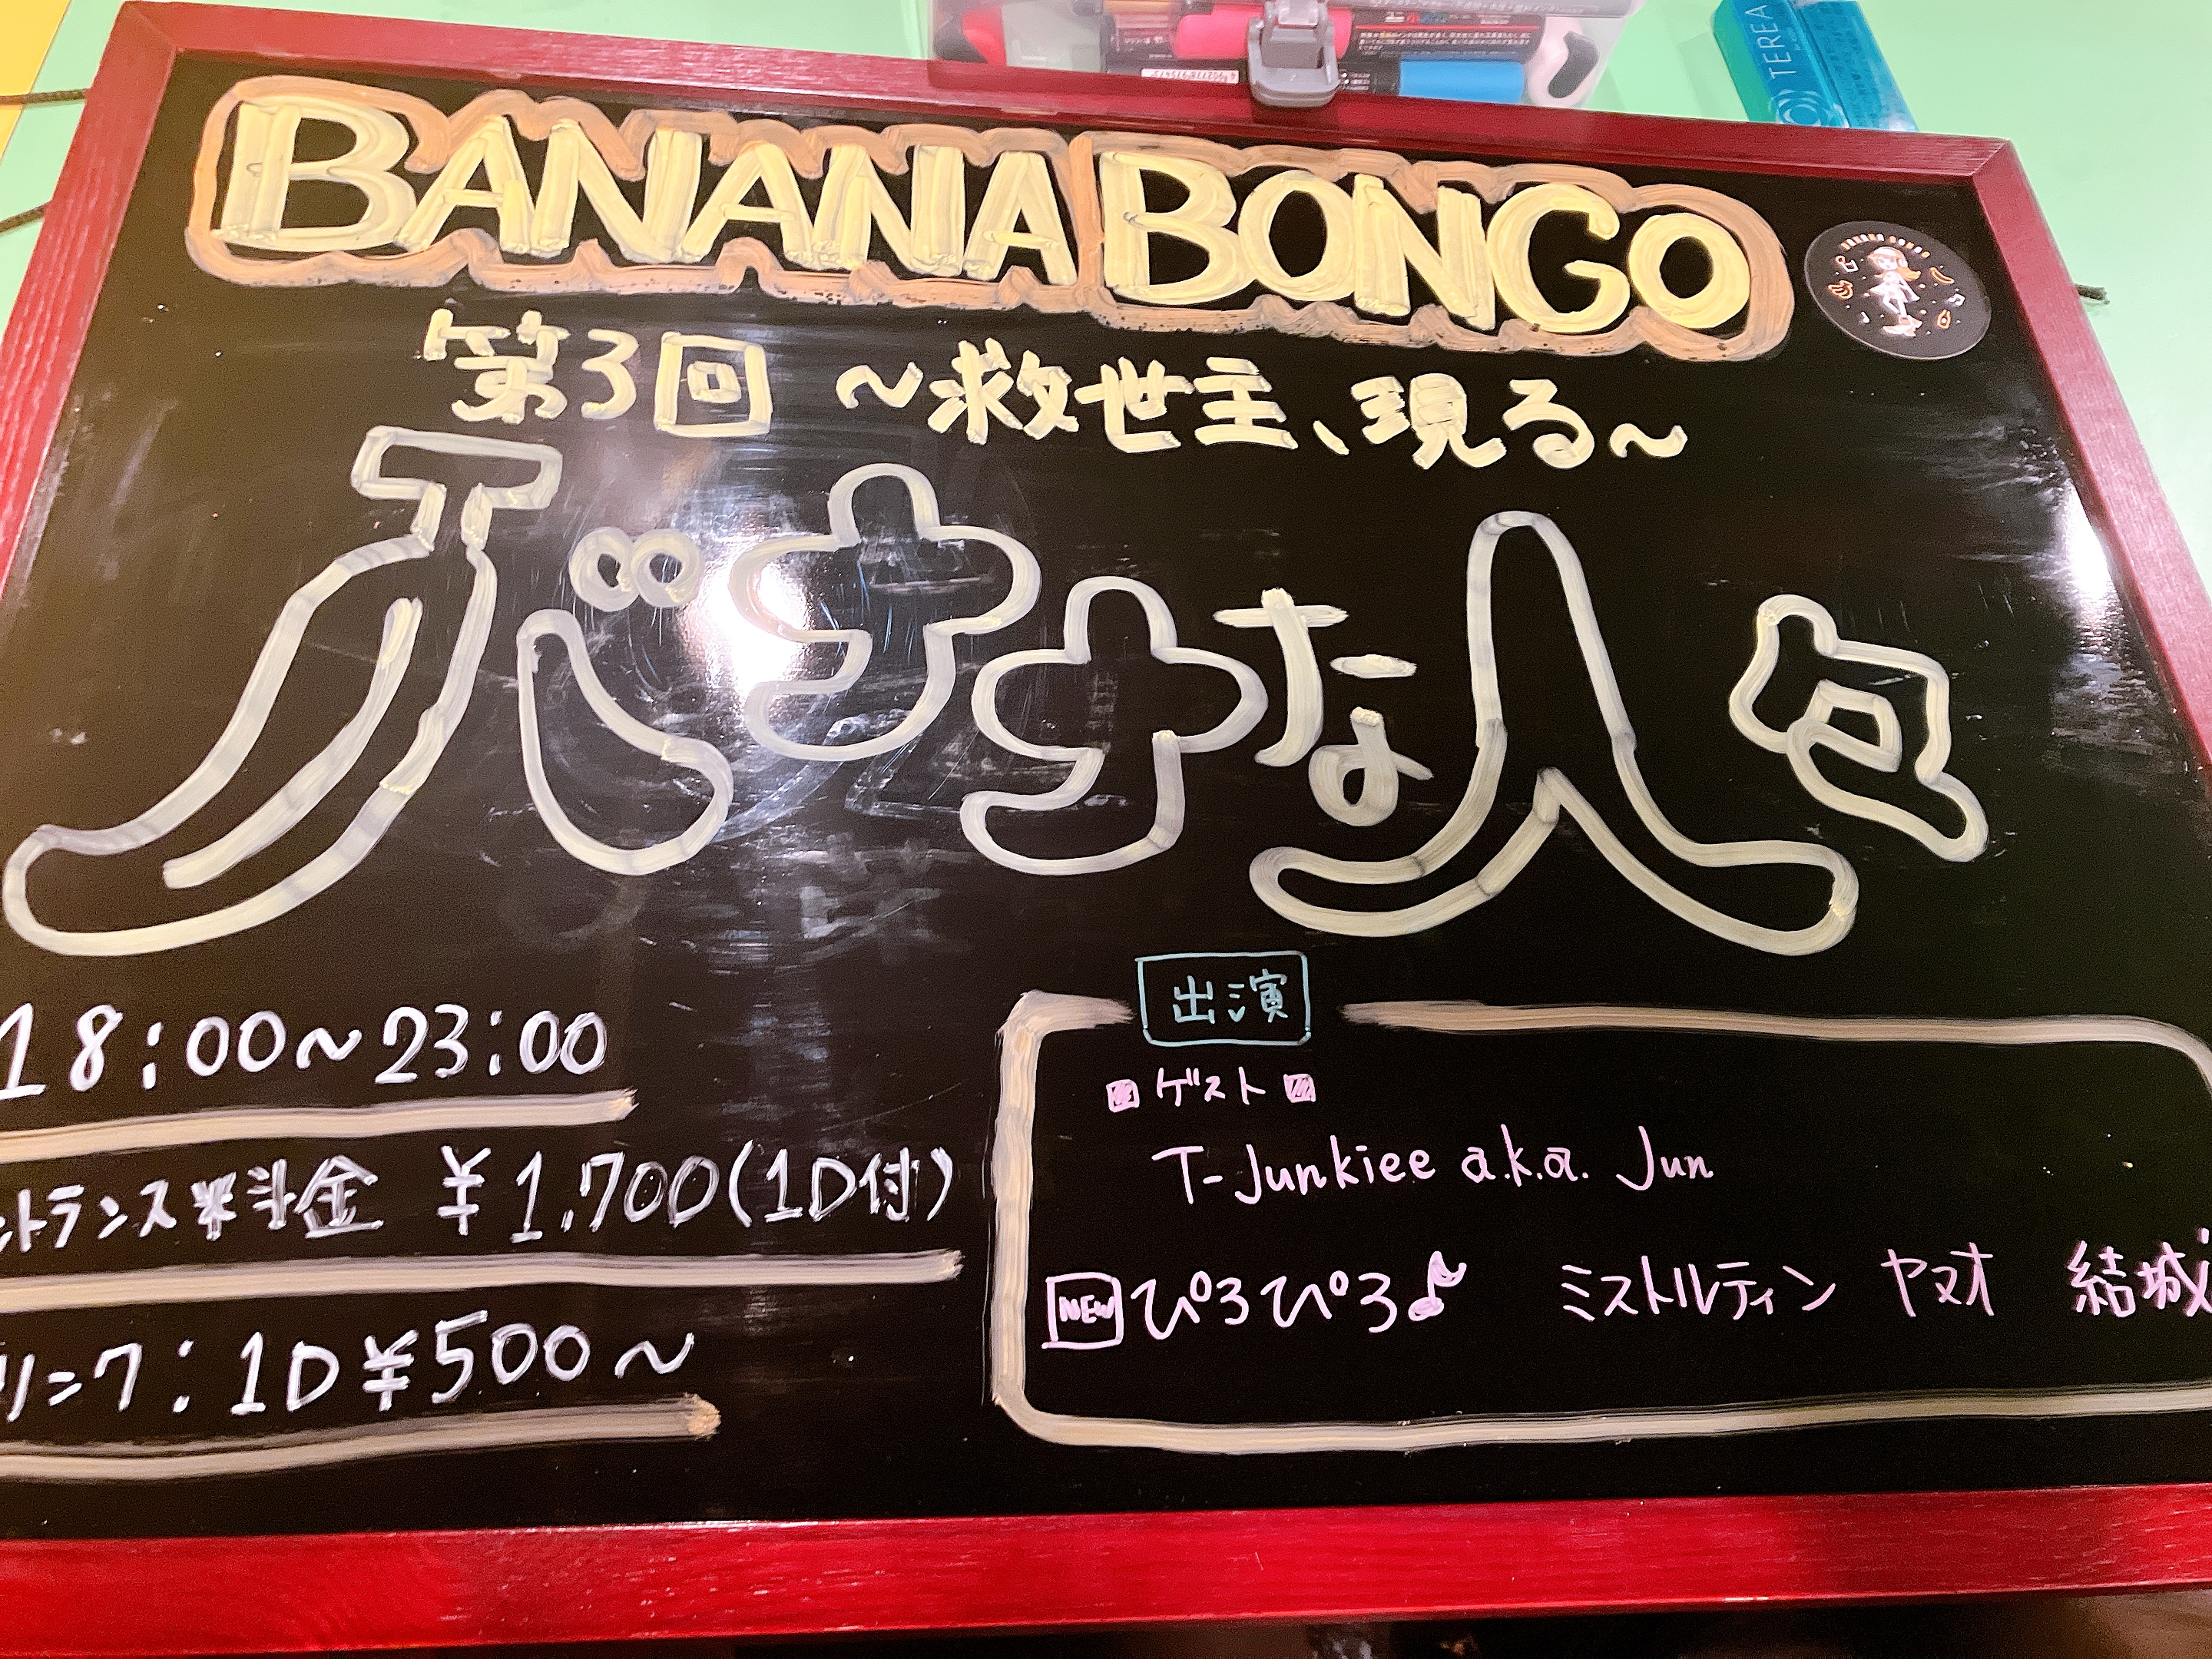 TEREA
BANANA BONGO
第3回 ~救世主、現る~
バナナな人
18:00~23:00
ントランス料金 ¥1,700(1D付)
リンク:1D¥500~
出演
ゲスト
T-Junkiee a.k.a. Jun
NEW ぴろぴろ♪ ミストルティン ヤヌオ 結城